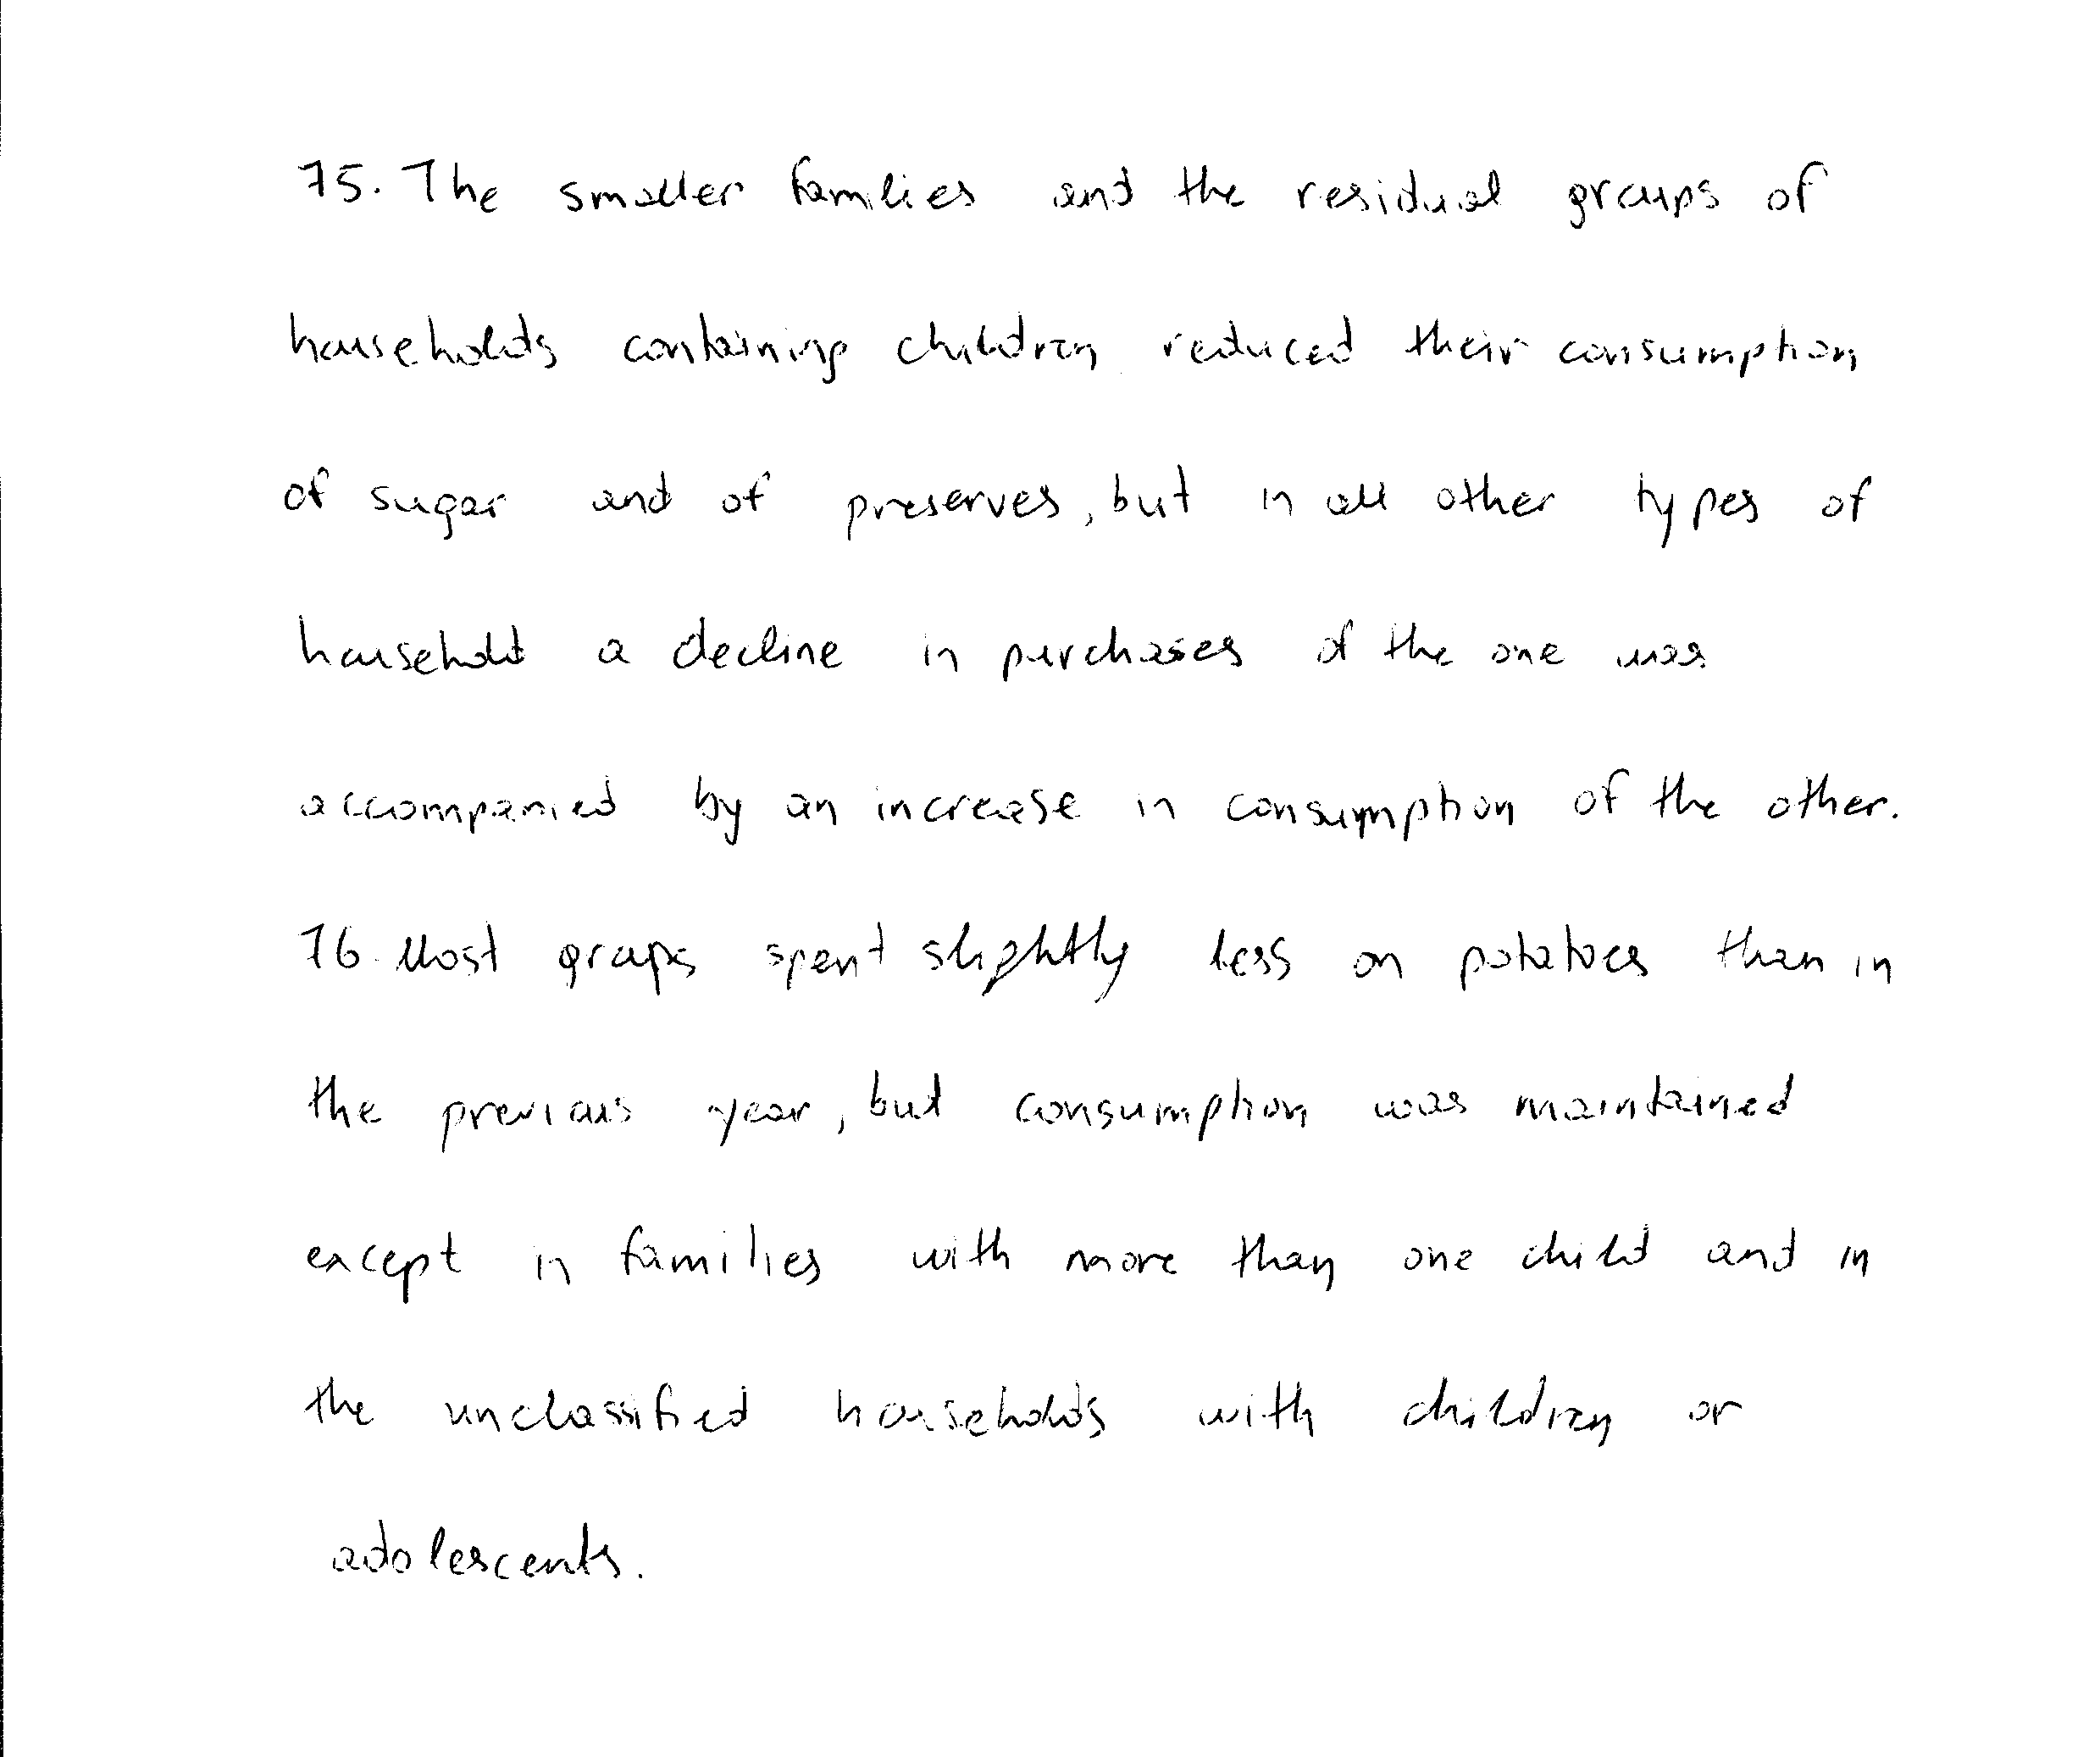 75. The smaller families and the residual groups of
households containing children reduced their consumption
of sugar and of preserves, but in all other types of
household a decline in purchases of the one was
accompanied by an increase in consumption of the other.
76. Most groups spent slightly less on potatoes than in
the previous year, but consumption was maintained
except in families with more than one child and in
the unclassified households with children or
adolescents.